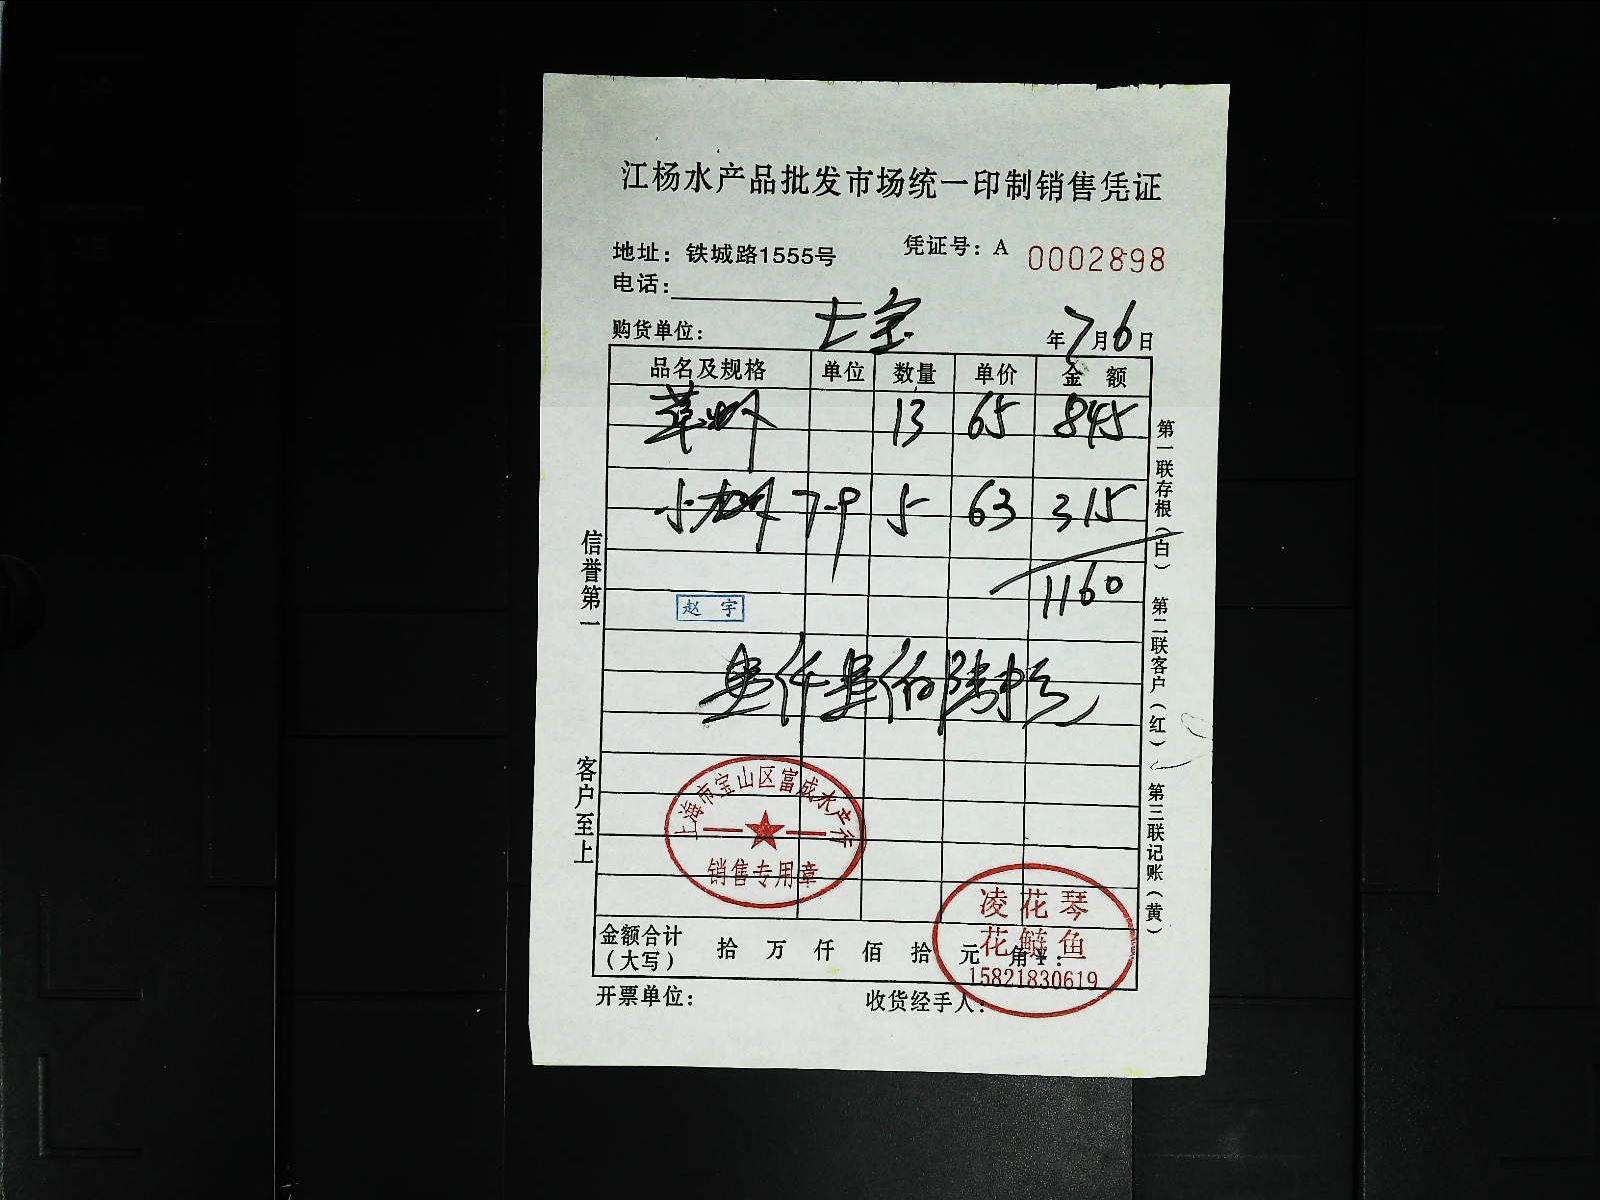 江杨水产品批发市场统一印制销售凭证
地址：铁城路1555号 凭证号：A 0002898
电话：
购货单位： 七宝 年7月6日
品名及规格 单位 数量 单价 金额
草虾 13 65 845
小龙虾 7-9 5 63 315
1160
赵宇
壹仟壹佰陆拾元
信誉第一
客户至上
第一联存根（白） 第二联客户（红） 第三联记账（黄）
上海市宝山区富成水产行
销售专用章
凌花琴
花鲢鱼
15821830619
金额合计（大写） 拾 万 仟 佰 拾 元 角 ¥：
开票单位： 收货经手人：